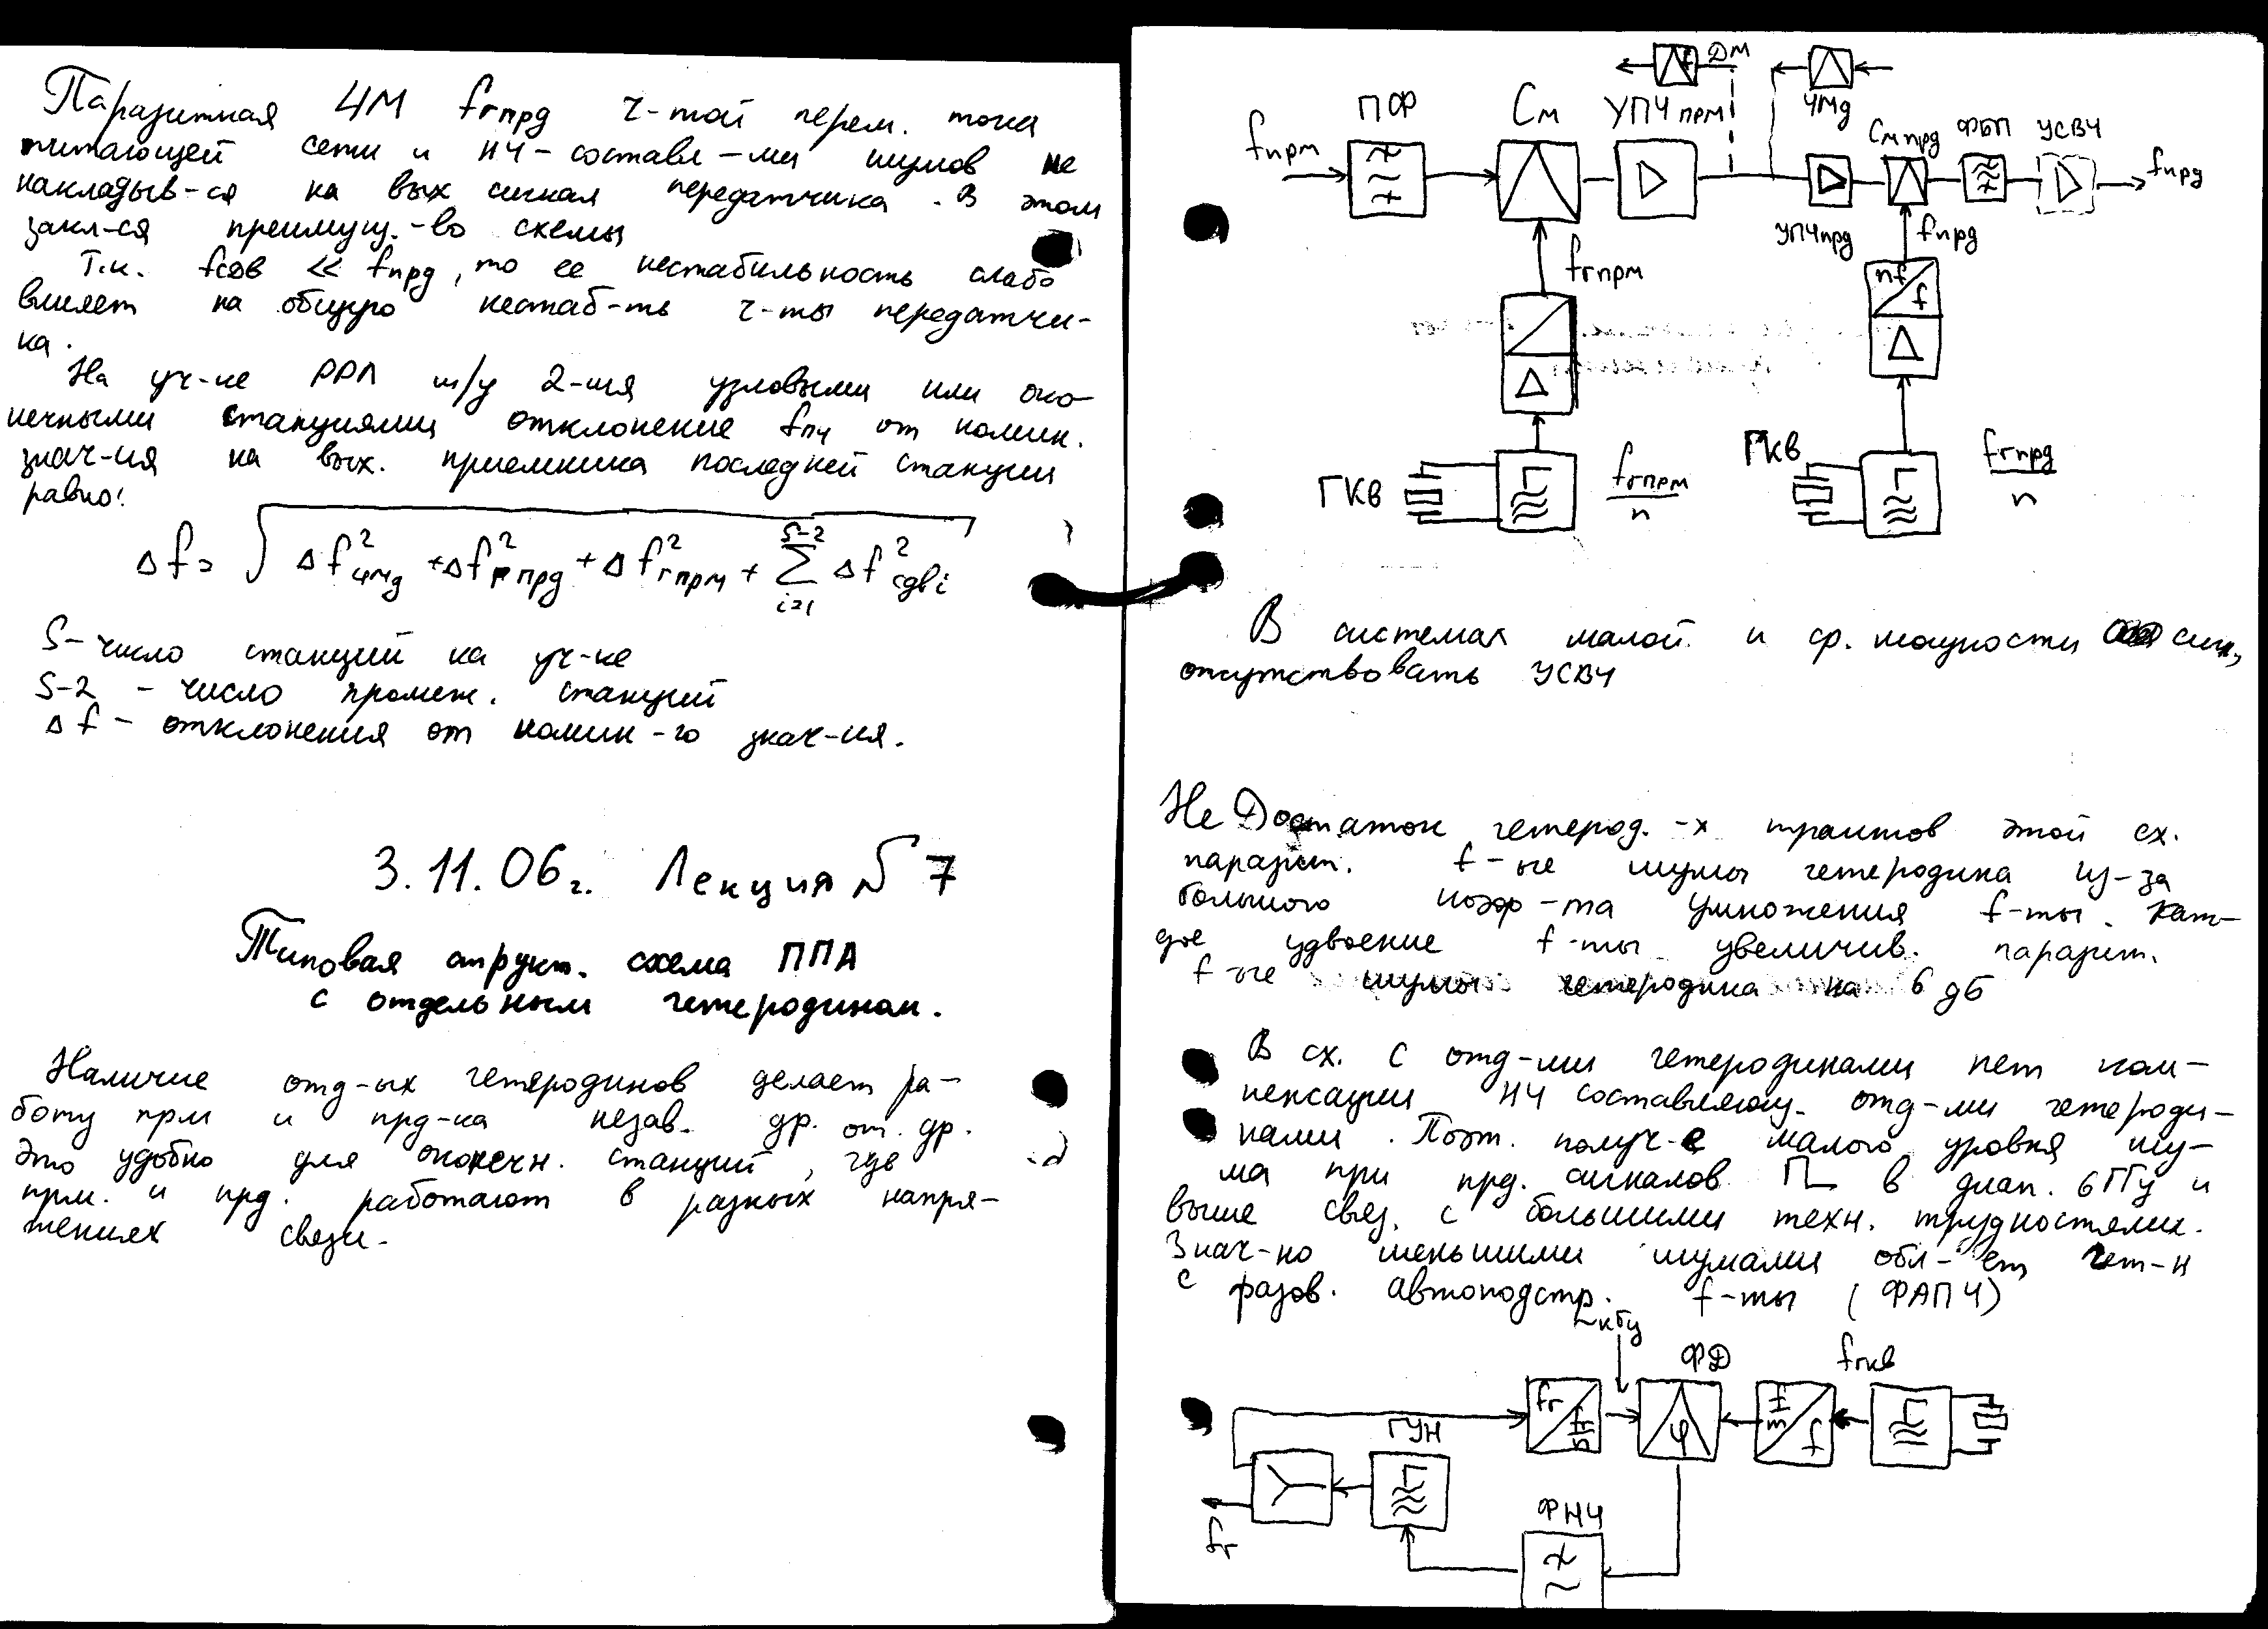 Паразитная ЧМ fгпрд ч-той перем. тока
питающей сети и НЧ-составл-ми шумов не
накладыв-ся на вых сигнал передатчика. В этом
закл-ся преимущ.-во схемы
Т.к. fсдв << fпрд, то ее нестабильность слабо
влияет на общую нестаб-ть ч-ты передатчи-
ка.
На уч-ке РРЛ м/у 2-мя узловыми или око-
нечными станциями отклонение fпч от номин.
знач-ия на вых. приемника последней станции
равно:
Δf = √(Δf²чмд + Δf²гпрд + Δf²гпрм + Σ Δf²сдвi)
S-2
i=1
S - число станций на уч-ке
S-2 - число промеж. станций
Δf - отклонения от номин-го знач-ия.
3.11.06г. Лекция № 7
Типовая структ. схема ППА
с отдельным гетеродином.
Наличие отд-ых гетеродинов делает ра-
боту прм и прд-ка незав. др. от. др.
Это удобно для оконечн. станций, где
прм. и прд. работают в разных напря-
жениях связи.
f ДМ
ЧМд
fпрм ПФ См УПЧпрм УПЧпрд Смпрд ФБП УСВЧ fпрд
fгпрм
fпрд
nf/f
ГКВ Г fгпрм/n
ГКВ Г fгпрд/n
В системах малой и ср. мощности
отсутствовать УСВЧ
НеДостаток гетерод.-х трактов этой сх.
паразит. f-ые шумы гетеродина из-за
большого коэф-та умножения f-ты. Каж-
дое удвоение f-ты увеличив. паразит.
f-ые шумы гетеродина на 6 дБ
В сх. с отд-ми гетеродинами нет ком-
пенсации НЧ составляющ. отд-ми гетероди-
нами. Поэт. получ-е малого уровня шу-
ма при прд. сигналов в диап. 6ГГц и
выше связ. с большими техн. трудностями.
Знач-но меньшими шумами обл-ет гет-н
с фазов. автоподстр. f-ты (ФАПЧ)
~кГц
fг fг/n ФД φ f/m f fгкв Г
ГУН Г
fг
ФНЧ